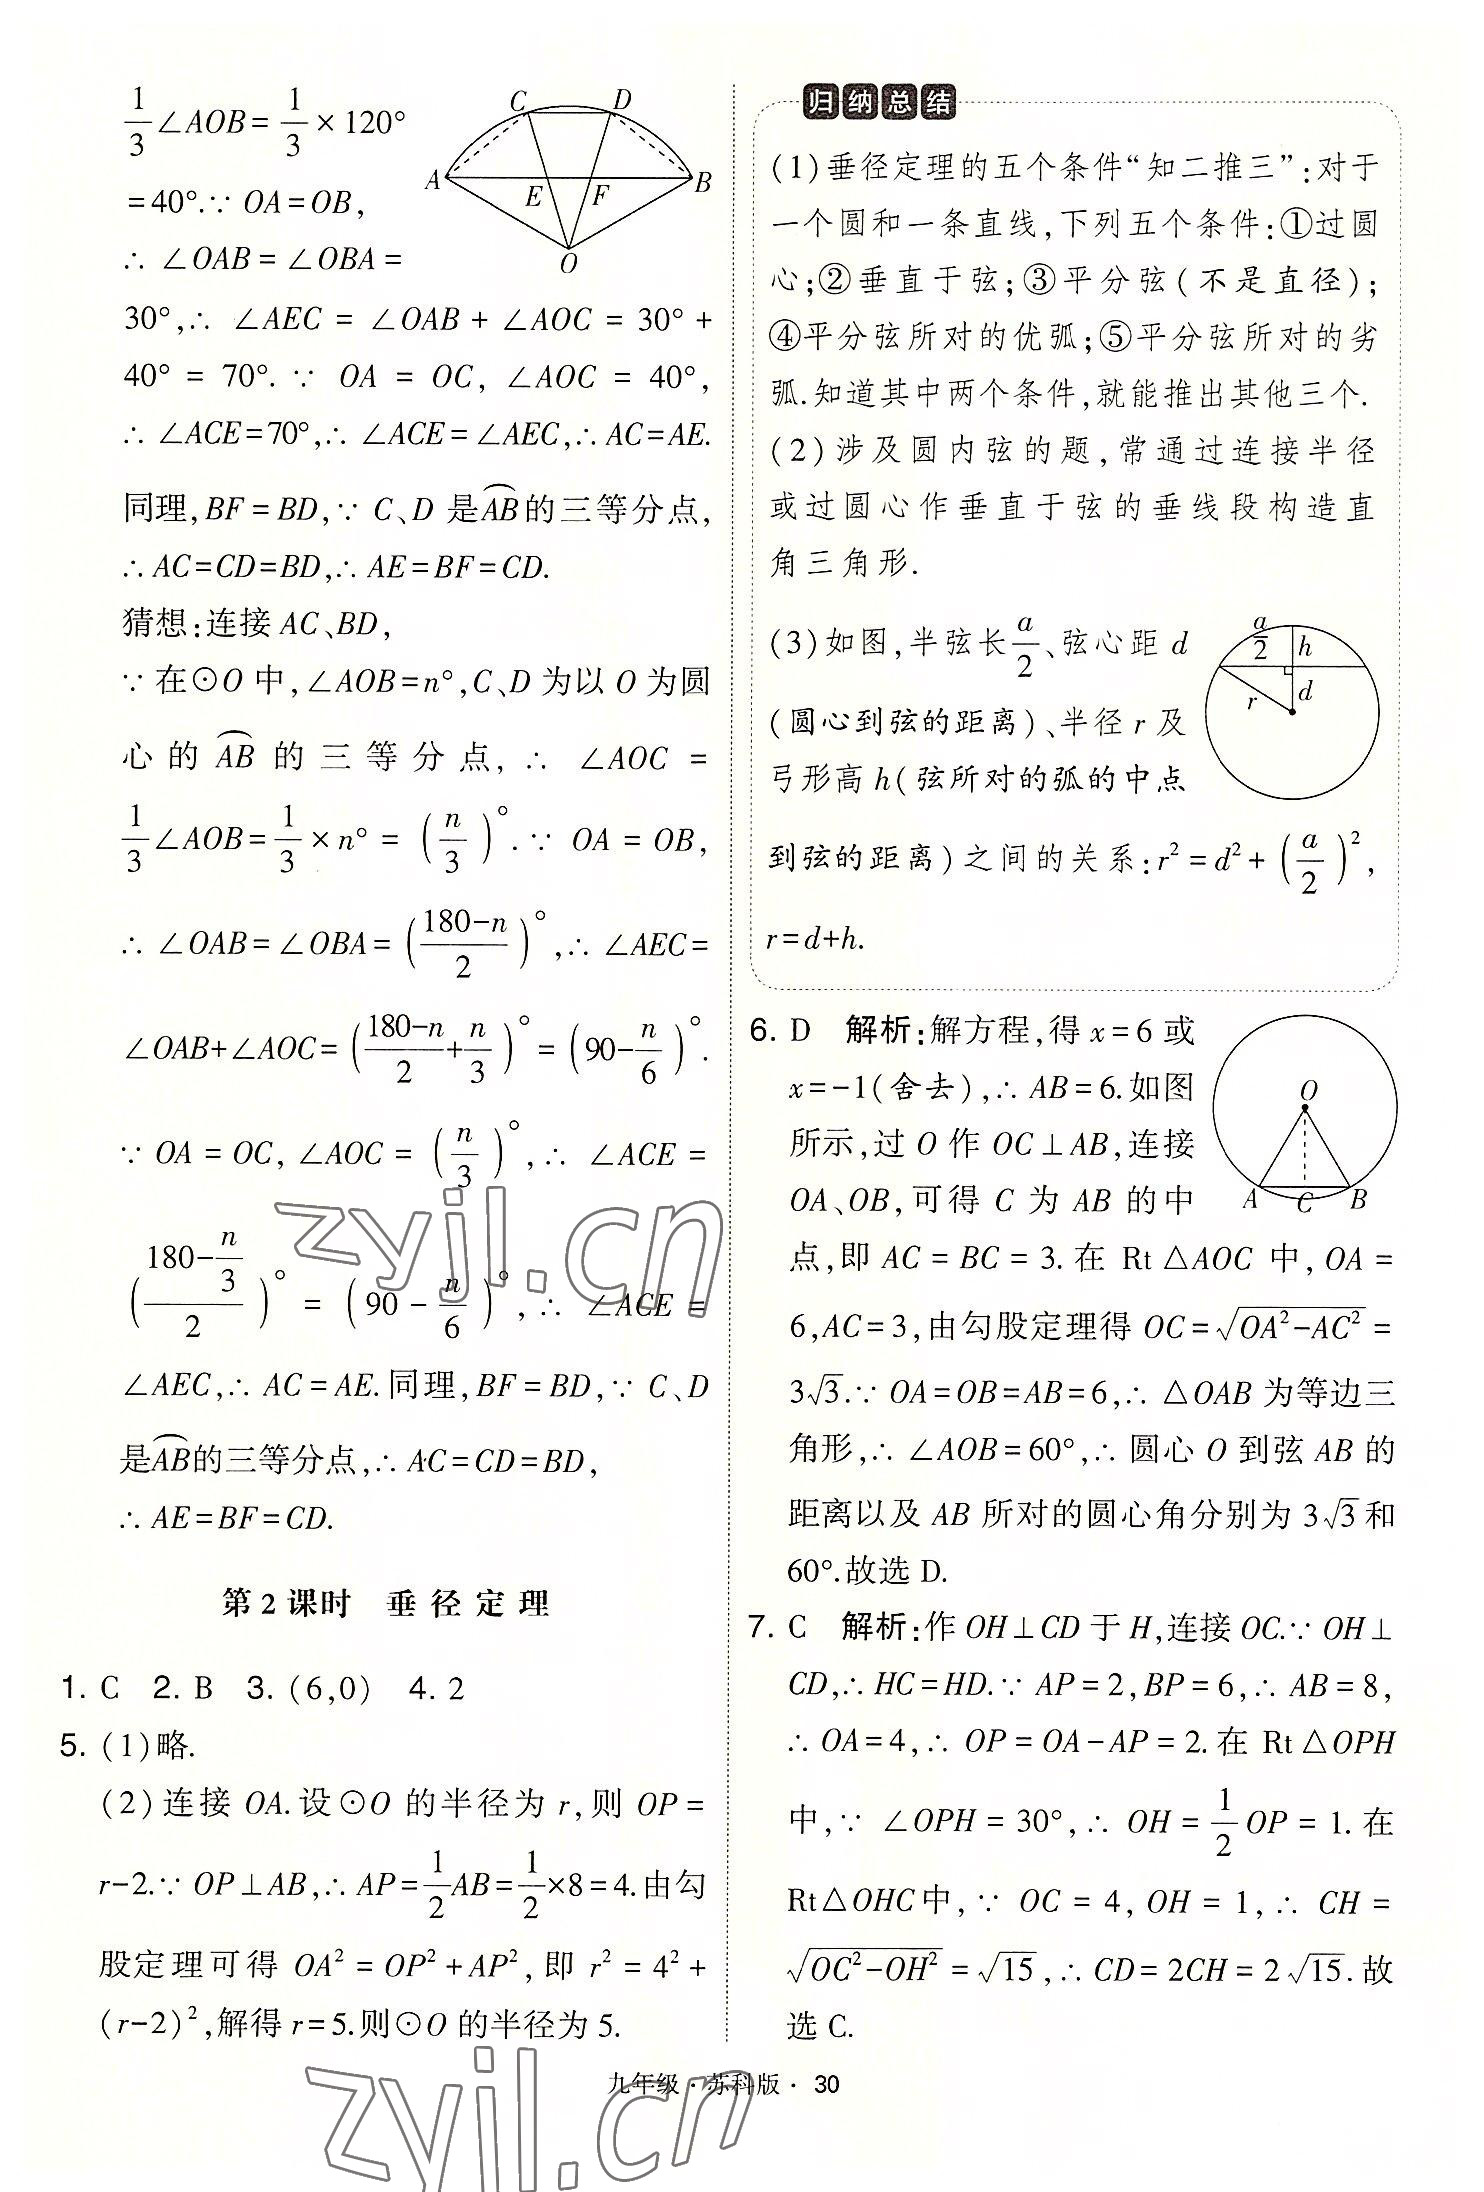 1/3∠AOB=1/3×120°
=40°.∵ OA=OB,
∴ ∠OAB=∠OBA=
30°,∴ ∠AEC = ∠OAB + ∠AOC = 30° +
40° = 70°. ∵ OA = OC, ∠AOC = 40°,
∴ ∠ACE=70°,∴ ∠ACE=∠AEC,∴ AC=AE.
同理,BF=BD,∵ C、D 是A͡B的三等分点,
∴ AC=CD=BD,∴ AE=BF=CD.
猜想:连接 AC、BD,
∵ 在⊙O 中,∠AOB=n°,C、D 为以 O 为圆
心的 A͡B 的三等分点, ∴ ∠AOC =
1/3∠AOB=1/3×n°=(n/3)°.∵ OA=OB,
∴ ∠OAB=∠OBA=((180-n)/2)°,∴ ∠AEC=
∠OAB+∠AOC=((180-n)/2+n/3)°=(90-n/6)°.
∵ OA = OC, ∠AOC = (n/3)°,∴ ∠ACE =
((180-n/3)/2)° = (90-n/6)°,∴ ∠ACE =
∠AEC,∴ AC=AE.同理,BF=BD,∵ C、D
是A͡B的三等分点,∴ AC=CD=BD,
∴ AE=BF=CD.
C D
A E F B
O
第2课时 垂径定理
1. C 2. B 3. (6,0) 4. 2
5. (1)略.
(2)连接 OA.设⊙O 的半径为 r,则 OP=
r-2.∵ OP⊥AB,∴ AP=1/2AB=1/2×8=4.由勾
股定理可得 OA²=OP²+AP²,即 r²=4²+
(r-2)²,解得 r=5.则⊙O 的半径为 5.
归纳总结
(1)垂径定理的五个条件“知二推三”:对于
一个圆和一条直线,下列五个条件:①过圆
心;②垂直于弦;③平分弦(不是直径);
④平分弦所对的优弧;⑤平分弦所对的劣
弧.知道其中两个条件,就能推出其他三个.
(2)涉及圆内弦的题,常通过连接半径
或过圆心作垂直于弦的垂线段构造直
角三角形.
(3)如图,半弦长a/2、弦心距 d
(圆心到弦的距离)、半径 r 及
弓形高 h(弦所对的弧的中点
到弦的距离)之间的关系:r²=d²+(a/2)²,
r=d+h.
a/2 h
r d
6. D 解析:解方程,得 x=6 或
x=-1(舍去),∴ AB=6.如图
所示,过 O 作 OC⊥AB,连接
OA、OB,可得 C 为 AB 的中
点,即 AC=BC=3.在 Rt△AOC 中,OA=
6,AC=3,由勾股定理得 OC=√(OA²-AC²)=
3√3.∵ OA=OB=AB=6,∴ △OAB 为等边三
角形,∴ ∠AOB=60°,∴ 圆心 O 到弦 AB 的
距离以及 AB 所对的圆心角分别为 3√3和
60°.故选 D.
O
A C B
7. C 解析:作 OH⊥CD 于 H,连接 OC.∵ OH⊥
CD,∴ HC=HD.∵ AP=2,BP=6,∴ AB=8,
∴ OA=4,∴ OP=OA-AP=2.在 Rt△OPH
中,∵ ∠OPH=30°,∴ OH=1/2OP=1.在
Rt△OHC中,∵ OC=4,OH=1,∴ CH=
√(OC²-OH²)=√15,∴ CD=2CH=2√15.故
选 C.
九年级·苏科版·30
zyjl.cn
zyjl.cn